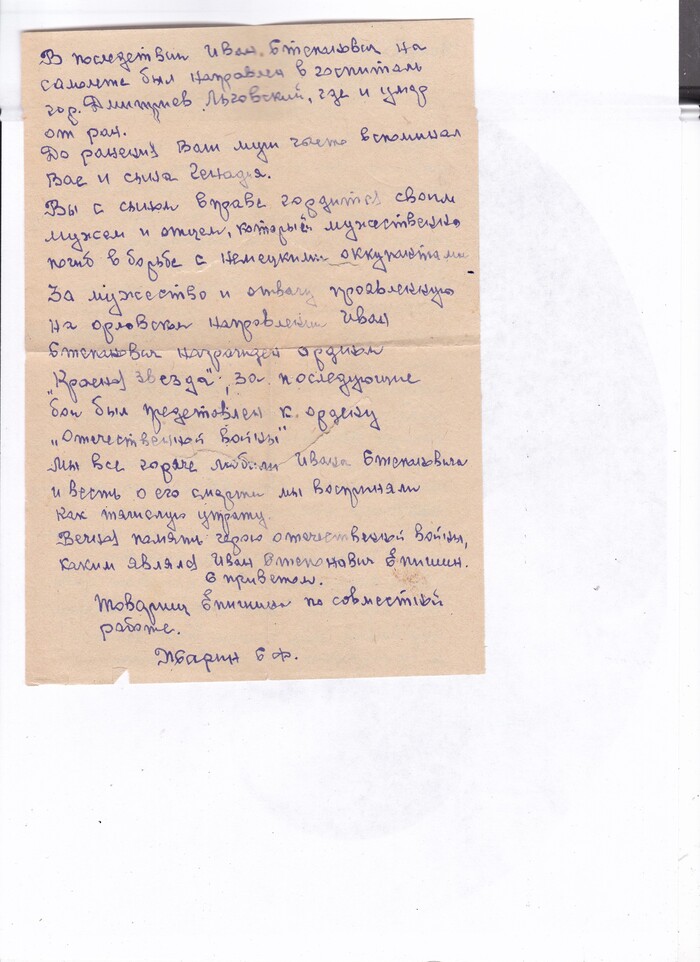 В последствии Иван Степанович на
самолете был направлен в госпиталь
гор. Дмитриев Льговский, где и умер
от ран.
До ранения Ваш муж часто вспоминал
Вас и сына Генадья.
Вы с сыном вправе гордится своим
мужем и отцем, который мужественно
погиб в борьбе с немецкими оккупантами
За мужество и отвагу проявленную
на орловском направлении Иван
Степанович награжден орденом
„Красная звезда", за последующие
бои был представлен к ордену
„Отечественной войны"
Мы все горяче любили Ивана Степановича
и весть о его смерти мы восприняли
как тяжелую утрату.
Вечная память герою отечественной войны,
каким являлся Иван Степанович Епишин.
С приветом.
Товарищ Епишина по совместной
работе.
С Ф.